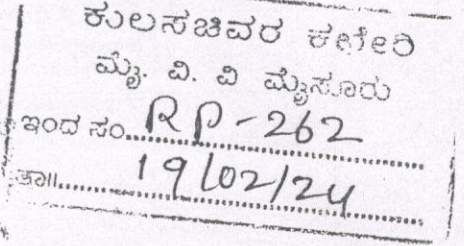 ಕುಲಸಚಿವರ ಕಛೇರಿ
ಮೈ. ವಿ. ವಿ ಮೈಸೂರು
ಇಂದ ಸಂ. RP-262
ತಾ॥ 19/02/24